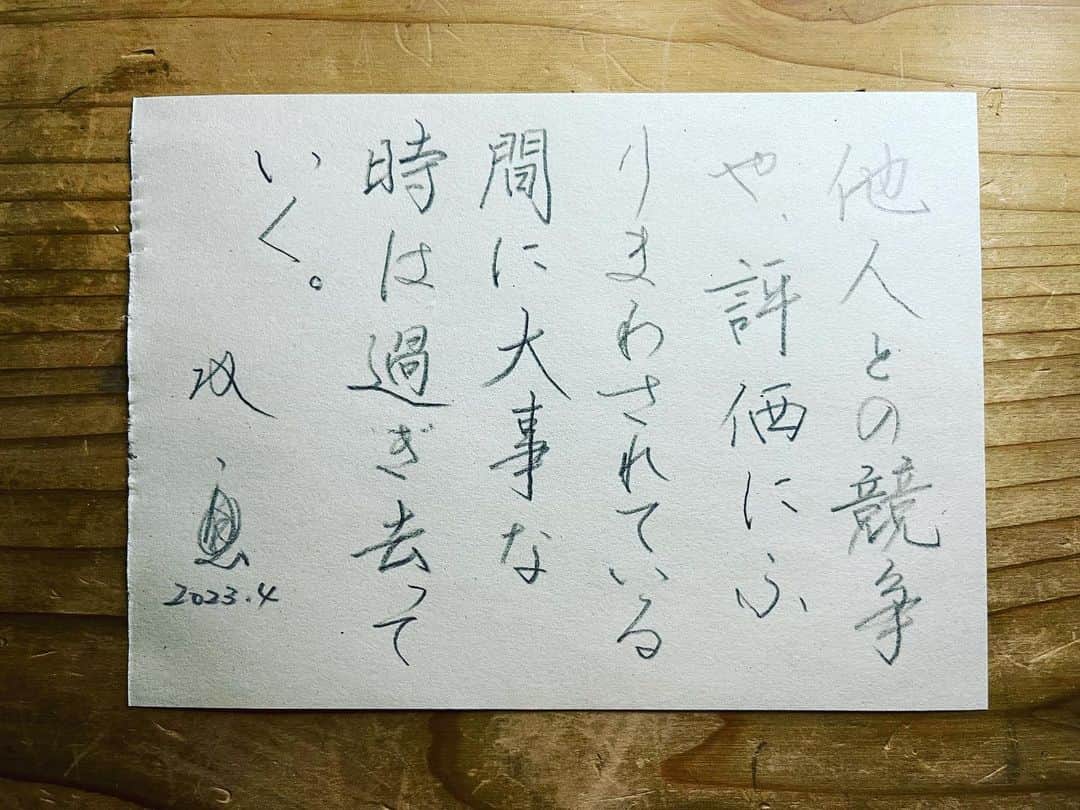 他人との競争
や、評価にふ
りまわされている
間に大事な
時は過ぎ去って
いく。
2023.4